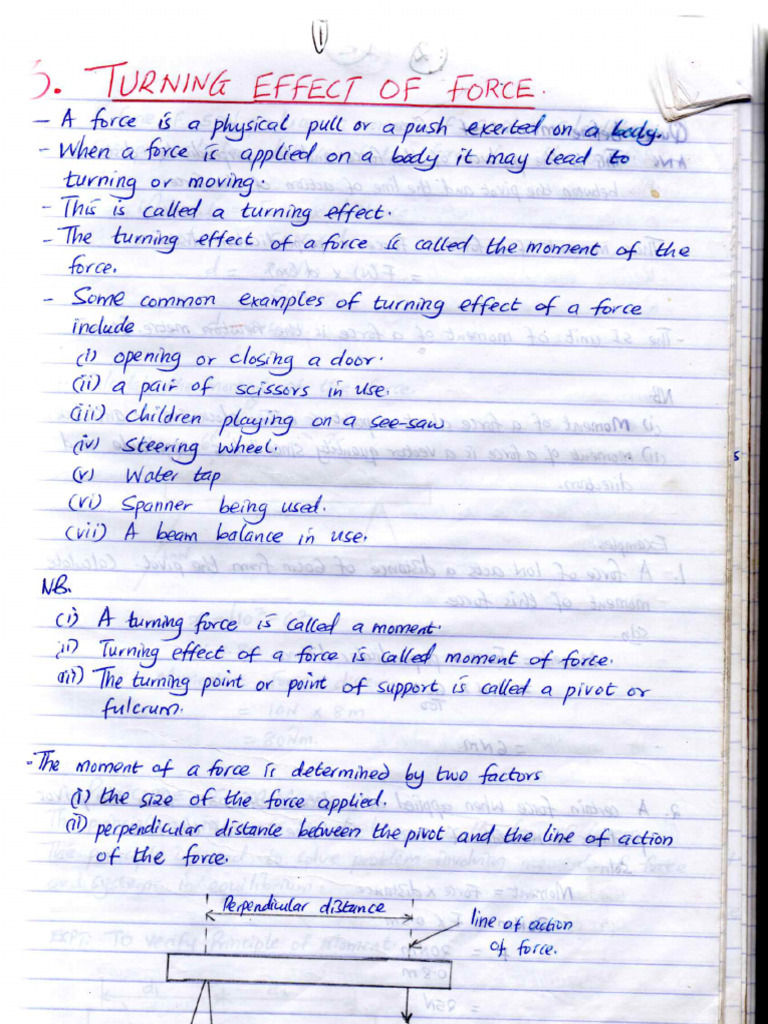 (1)
3. TURNING EFFECT OF FORCE.
- A force is a physical pull or a push exerted on a body.
- When a force is applied on a body it may lead to
turning or moving.
- This is called a turning effect.
- The turning effect of a force is called the moment of the
force.
- Some common examples of turning effect of a force
include
(i) opening or closing a door.
(ii) a pair of scissors in use.
(iii) children playing on a see-saw
(iv) Steering wheel.
(v) Water tap
(vi) Spanner being used.
(vii) A beam balance in use.
NB.
(i) A turning force is called a moment.
ii) Turning effect of a force is called moment of force.
iii) The turning point or point of support is called a pivot or
fulcrum.
- The moment of a force is determined by two factors
(i) the size of the force applied.
(ii) perpendicular distance between the pivot and the line of action
of the force.
Perpendicular distance
line of action
of force.